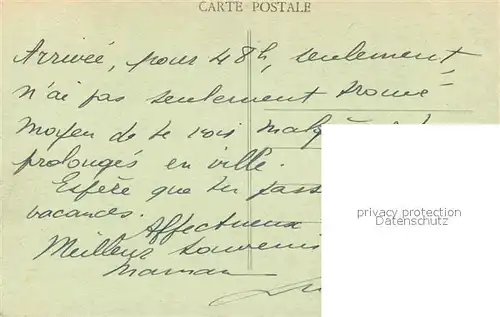 CARTE POSTALE
Arrivée, pour 48h, seulement
n'ai pas seulement trouvé
moyen de te voir
prolongés en ville.
Espère que tu pass
vacances.
Affectueux
Meilleur souvenir
Maman
privacy protection
Datenschutz